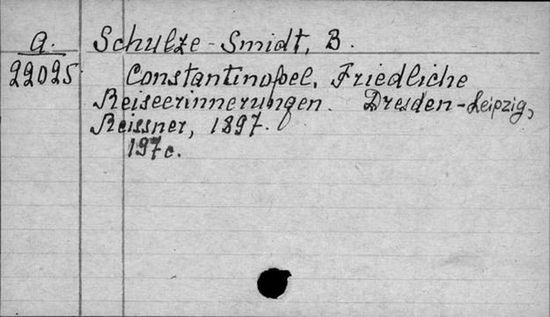 a. Schulze-Smidt, B.
22025 Constantinopel. Friedliche
Reiseerinnerungen. Dresden-Leipzig,
Reissner, 1897.
197c.